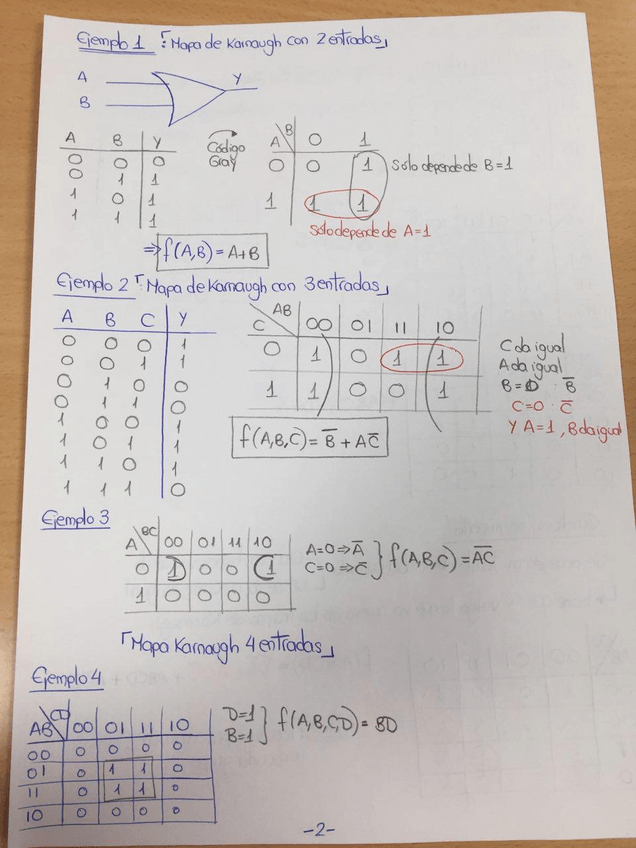 Ejemplo 1 「Mapa de Karnaugh con 2 entradas」
A
B
Y
A B Y
0 0 0
0 1 1
1 0 1
1 1 1
Código
Gray
A\B 0 1
0 0 1
1 1 1
Sólo depende de B=1
Sólo depende de A=1
⇒ f(A,B) = A+B
Ejemplo 2 「Mapa de Karnaugh con 3 entradas」
A B C Y
0 0 0 1
0 0 1 1
0 1 0 0
0 1 1 0
1 0 0 1
1 0 1 1
1 1 0 1
1 1 1 0
C\AB 00 01 11 10
0 1 0 1 1
1 1 0 0 1
C da igual
A da igual
B=0 · B̅
C=0 · C̅
Y A=1, B da igual
f(A,B,C) = B̅ + AC̅
Ejemplo 3
A\BC 00 01 11 10
0 1 0 0 1
1 0 0 0 0
A=0 ⇒ A̅
C=0 ⇒ C̅
} f(A,B,C) = A̅C̅
「Mapa Karnaugh 4 entradas」
Ejemplo 4
AB\CD 00 01 11 10
00 0 0 0 0
01 0 1 1 0
11 0 1 1 0
10 0 0 0 0
D=1
B=1
} f(A,B,C,D) = BD
-2-